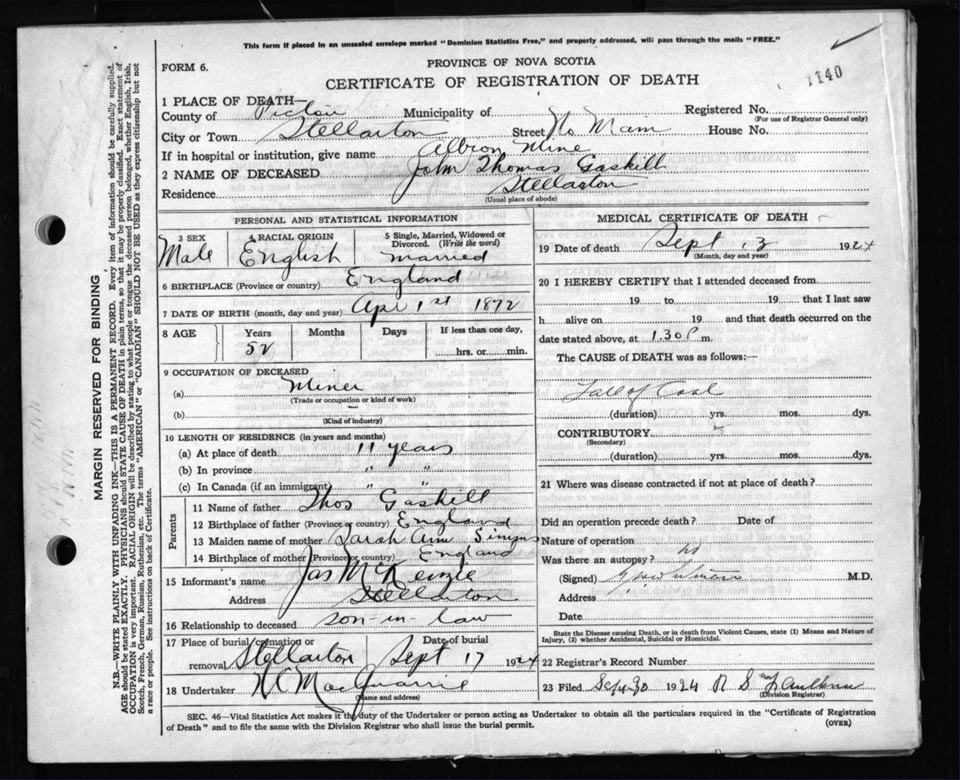 This form if placed in an unsealed envelope marked "Dominion Statistics Free," and properly addressed, will pass through the mails "FREE."
FORM 6.
PROVINCE OF NOVA SCOTIA
CERTIFICATE OF REGISTRATION OF DEATH
1140
1 PLACE OF DEATH—
County of Pictou Municipality of Registered No.
(For use of Registrar General only)
City or Town Stellarton Street No Main House No.
If in hospital or institution, give name Albion Mine
2 NAME OF DECEASED John Thomas Gaskill
Residence Stellarton
(Usual place of abode)
PERSONAL AND STATISTICAL INFORMATION
3 SEX Male
4 RACIAL ORIGIN English
5 Single, Married, Widowed or Divorced. (Write the word) married
6 BIRTHPLACE (Province or country) England
7 DATE OF BIRTH (month, day and year) Apr 1st 1872
8 AGE Years Months Days If less than one day,
52 hrs. or min.
9 OCCUPATION OF DECEASED
(a) Miner
(Trade or occupation or kind of work)
(b)
(Kind of industry)
10 LENGTH OF RESIDENCE (in years and months)
(a) At place of death 11 years
(b) In province " "
(c) In Canada (if an immigrant) " "
Parents
11 Name of father Thos Gaskell
12 Birthplace of father (Province or country) England
13 Maiden name of mother Sarah Ann Simms
14 Birthplace of mother (Province or country) England
15 Informant's name Jas McKenzie
Address Stellarton
16 Relationship to deceased son-in-law
17 Place of burial/cremation or Date of burial
removal Stellarton Sept 17 1924
18 Undertaker MacQuarrie
(Name and address)
MEDICAL CERTIFICATE OF DEATH
19 Date of death Sept 13 1924
(Month, day and year)
20 I HEREBY CERTIFY that I attended deceased from
19 to 19 that I last saw
h alive on 19 and that death occurred on the
date stated above, at 1.30 P m.
The CAUSE of DEATH was as follows:—
Fall of Coal
(duration) yrs. mos. dys.
CONTRIBUTORY
(Secondary)
(duration) yrs. mos. dys.
21 Where was disease contracted if not at place of death?
Did an operation precede death? Date of
Nature of operation
Was there an autopsy? no
(Signed) M.D.
Address
Date
State the Disease causing Death, or in death from Violent Causes, state (1) Means and Nature of
Injury, (2) whether Accidental, Suicidal or Homicidal.
22 Registrar's Record Number
23 Filed Sept 30 1924 R S Faulkner
(Division Registrar)
SEC. 46—Vital Statistics Act makes it the duty of the Undertaker or person acting as Undertaker to obtain all the particulars required in the "Certificate of Registration
of Death" and to file the same with the Division Registrar who shall issue the burial permit. (OVER)
MARGIN RESERVED FOR BINDING
N.B.—WRITE PLAINLY WITH UNFADING INK—THIS IS A PERMANENT RECORD. Every item of information should be carefully supplied.
AGE should be stated EXACTLY. PHYSICIANS should STATE CAUSE OF DEATH in plain terms, so that it may be properly classified. Exact statement of
OCCUPATION is very important. RACIAL ORIGIN will be described by stating to what people or tongue the deceased person belonged, whether English, Irish,
Scotch, French, German, Russian, Ruthenian, etc. The terms "AMERICAN" or "CANADIAN" SHOULD NOT BE USED as they express citizenship but not
a race or people. See instructions on back of Certificate.